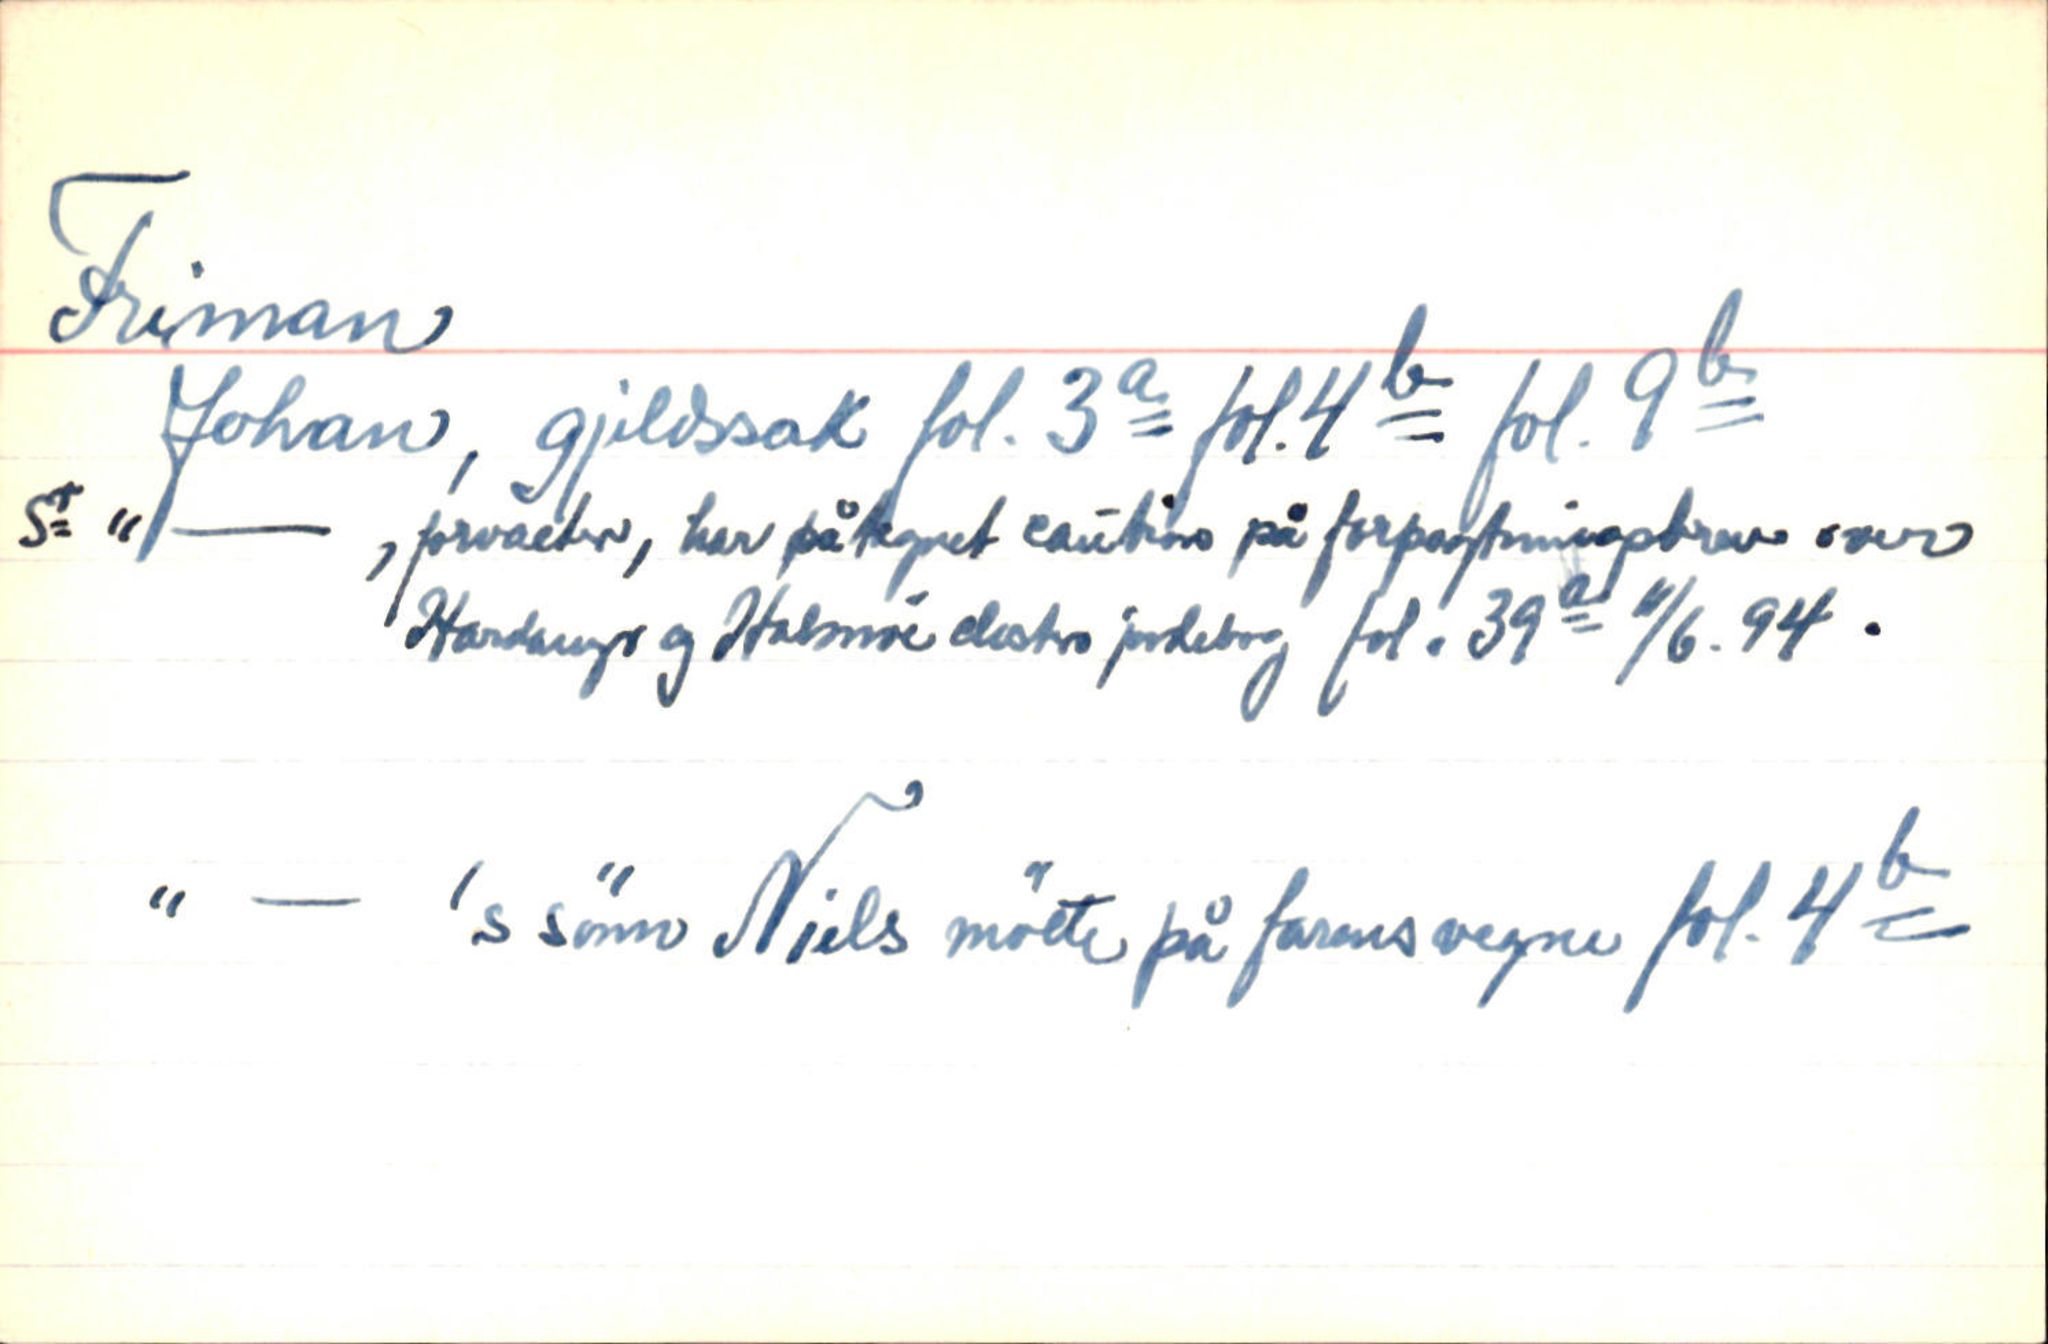 Friman
Johan, gjeldssak fol. 3a fol. 4b fol. 9b
Sr " — , forvalter, har påtegnet caution på forpagtningsbrev over
Hardanger og Halsnöe closters jordebog fol. 39a 11/6. 94.
" — 's sönn Niels mötte på farens vegne fol. 4b